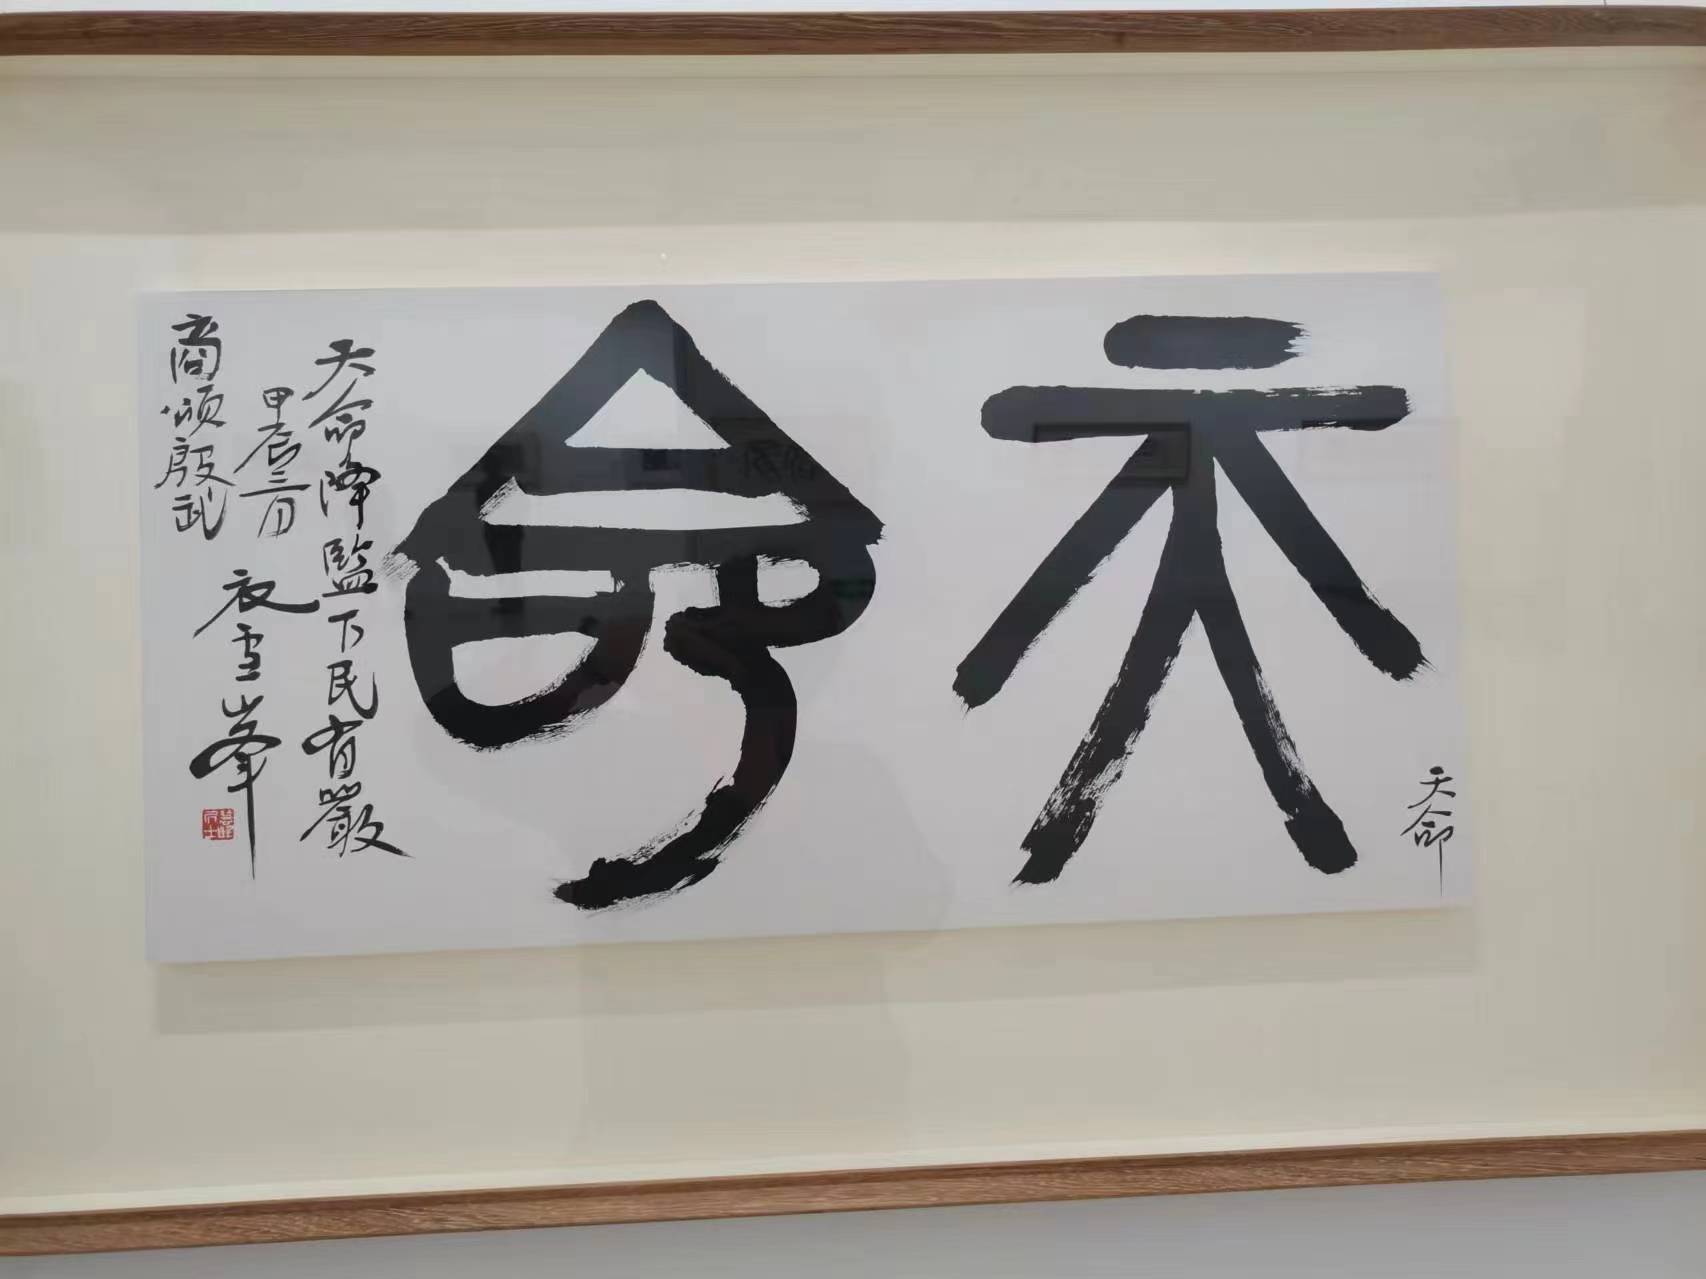 天命
天命
天命降監下民有嚴
商頌殷武
甲辰三月
衣雪峰